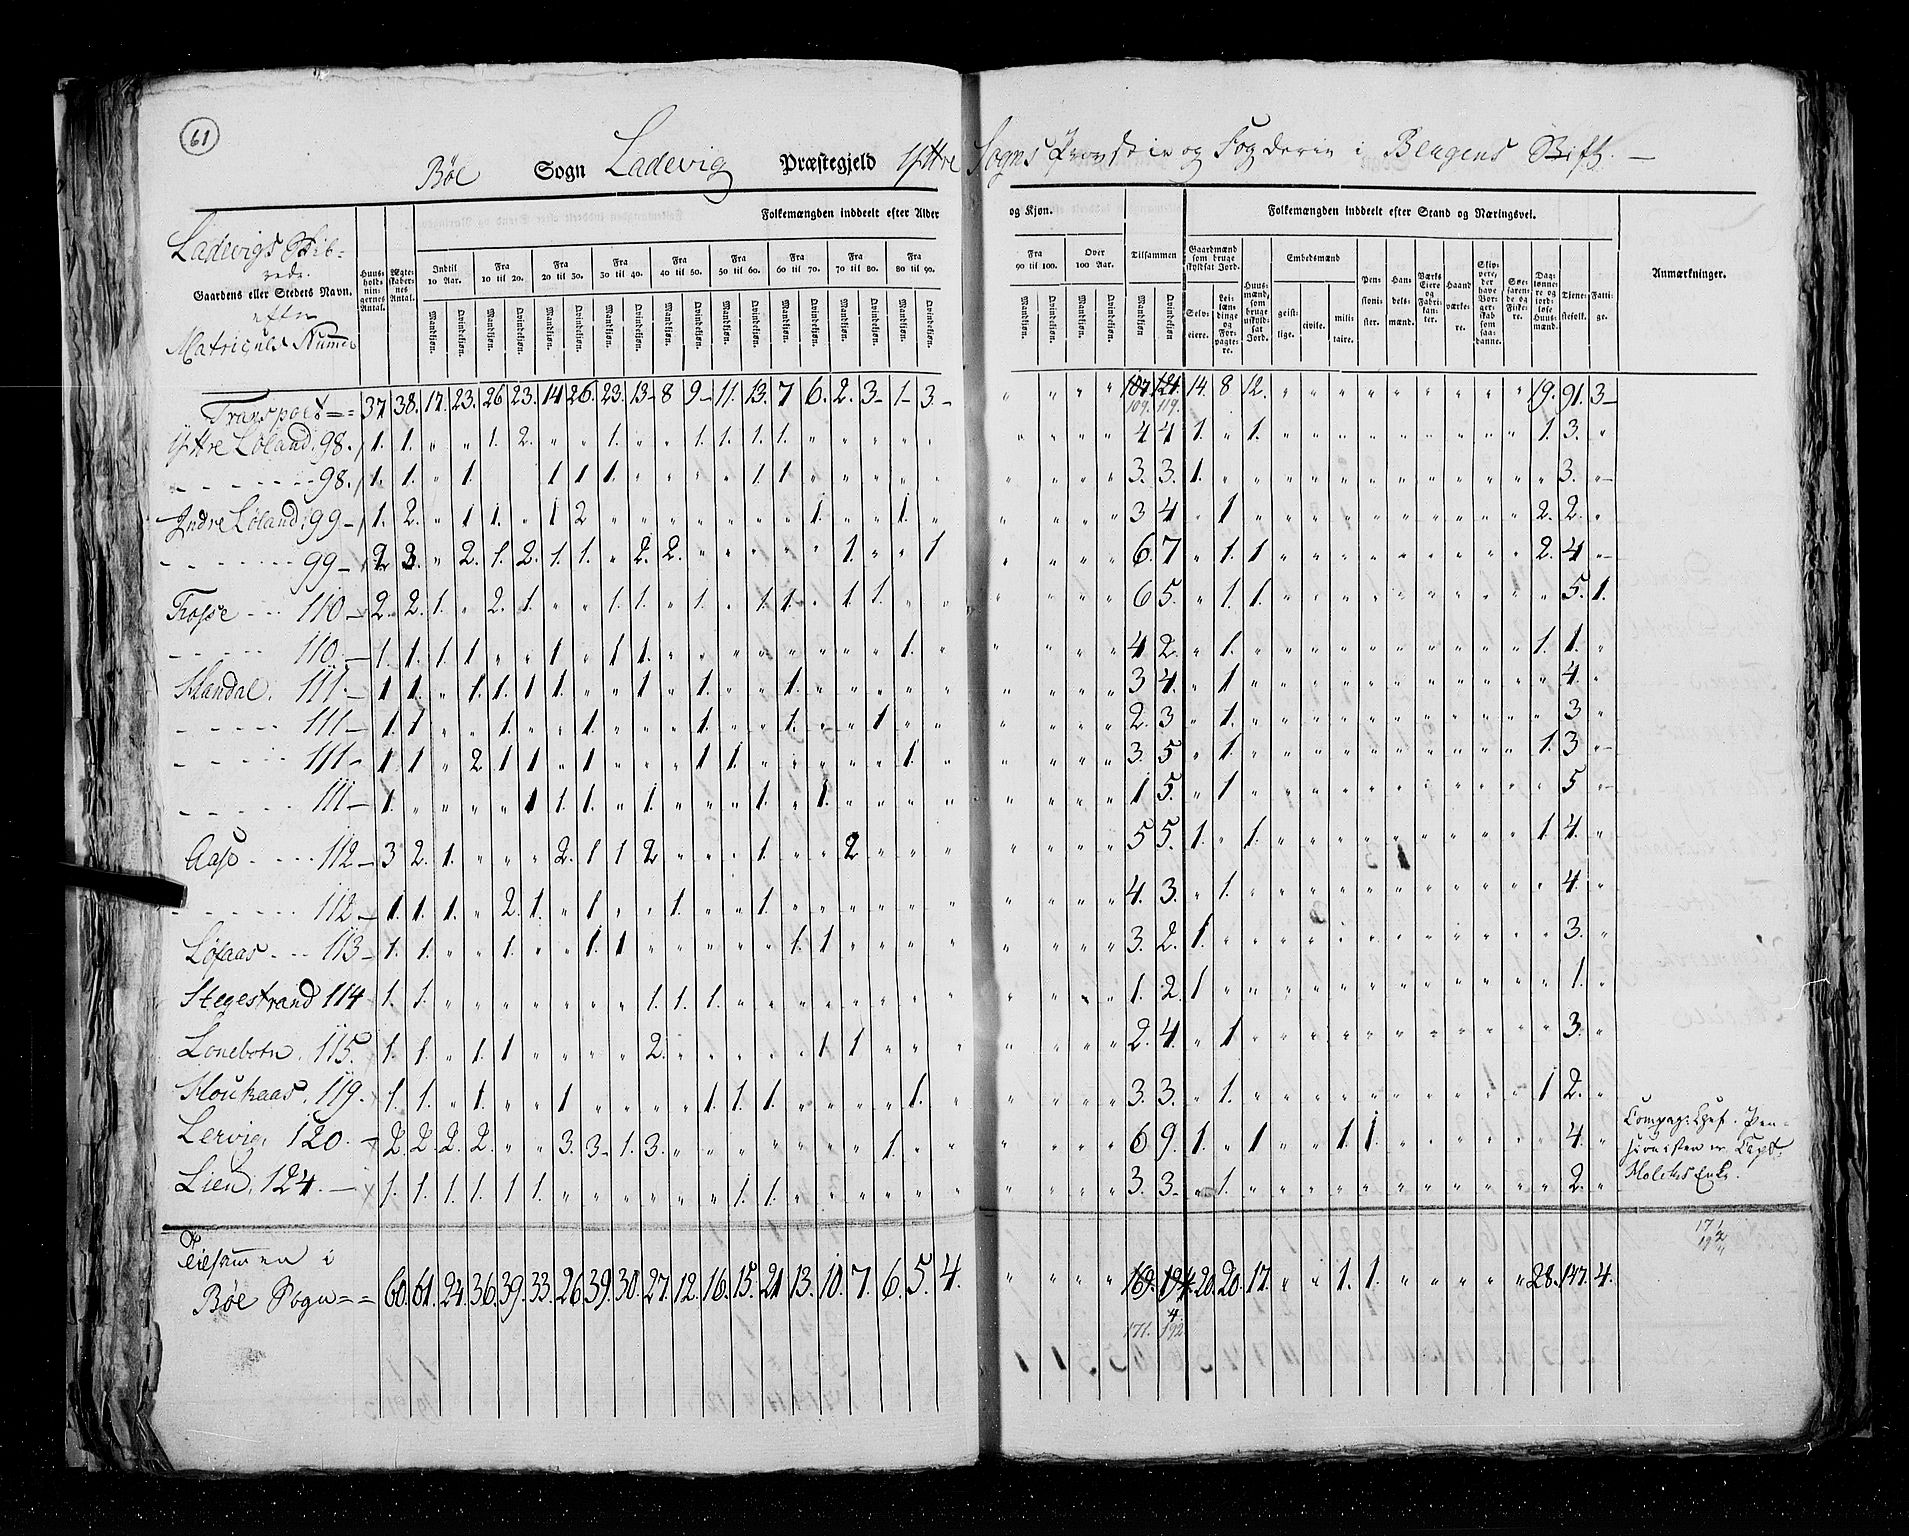 61
Bøe Sogn Ladevig Præstegjeld Yttre Sogns Provstie og Fogderie i Bergens Stift. —
Ladevigs Skib-
rede.
Gaardens eller Stedets Navn.
efter
Matriculs Numer
Huus-
hold-
nin-
gernes
Antal.
Ægte-
skaber-
nes
Antal.
Folkemængden inddeelt efter Alder og Kjøn.
Indtil 10 Aar.
Fra 10 til 20.
Fra 20 til 30.
Fra 30 til 40.
Fra 40 til 50.
Fra 50 til 60.
Fra 60 til 70.
Fra 70 til 80.
Fra 80 til 90.
Fra 90 til 100.
Over 100 Aar.
Tilsammen
Mandkjøn. Qvindekjøn.
Folkemængden inddeelt efter Stand og Næringsvei.
Gaardmænd som bruge skyldsat Jord.
Selv-
eiere.
Lei-
læn-
dinge
og
For-
pagte-
re.
Huus-
mænd,
som
bruge
uskyld-
sat
Jord.
Embedsmænd
geist-
lige.
civile.
mili-
taire.
Pen-
sioni-
ster.
Han-
dels-
mænd.
Værks
Eiere
og
Fabri-
kan-
ter.
Haand
værke-
re.
Skip-
pere,
der
have
Bor-
ger-
skab
som
saa-
danne.
Søe-
faren-
de og
Fiske-
re.
Dag-
lønne-
re og
jord-
løse
Huus-
mænd.
Tjene-
stefolk.
Fatti-
ge.
Anmærkninger.
Transport 37 38. 17. 23. 26 23. 14 26. 23. 13 8 9 11. 13. 7 6. 2. 3. 1 3. " " " " 107 121 14. 8 12. " " " " " " " " " 19. 91. 3
109. 119.
Yttre Løland. 98. 1. 1. " " 1. 2. " " 1. " " 1. 1. 1. 1. " " " " " " " " " 4 4 1. " 1. " " " " " " " " " 1. 3. "
98. 1. 1. " 1. 1 1 1. " " " " 1 1. " " " " " " " " " 3. 3. 1. " " " " " " " " " " " 3. "
Indre Løland. 99 1. 2. " 1 1. " 1 2 " " " " " " " 1. " " 1. " " " " " 3 4 " 1 " " " " " " " " " " 2. 2. "
99 2 3. " 2. 1. 2. 1. 1. " 2. 2. " " " " " 1. " " 1 " " " " 6. 7 " 1. 1 " " " " " " " " " 2. 4 "
Trosse 110 2. 2. 1. " 2. 1. " " 1. 1. " 1. " 1. 1. " 1. 1. " " " " " " 6 5. " 1. 1. " " " " " " " " " " 5. 1.
110. 1. 1. 1. 1 " " 1 " 1 1. " " " " " " " " 1. " " " " " 4 2. " 1. " " " " " " " " " " 1. 1. "
111. 1 1. " 1. 1. 1 1. " " 1 " 1. " " 1. " " " " " " " " " 3 4. " 1 " " " " " " " " " " " 4. "
111 1. 1 " " 1. " " 1. " " " 1. " " 1. " " 1 " " " " " " 2. 3 " 1. " " " " " " " " " " " 3 "
111 1. 1 " 2 1 1 " 1. " " " 1 1. " " " " " 1. " " " " " 3. 5 " 1. " " " " " " " " " " 1. 3 "
111 1. " " " " 1 1. 1. " 1. " " " 1. " 1. " " " " " " " " 1 5. " 1 " " " " " " " " " " " 5 "
Aase 112 3 2. 1. " " " 2. 1 1 2 " " " 1. " " 2 " " " " " " " 5 5. 1. " 1. " " " " " " " " " 1 4. "
112 1. 1. 1. " 2. 1. " 1. " " 1. " " 1. " " " " " " " " " " 4. 3. " 1. " " " " " " " " " " " 4. "
113 1. 1. " " 1. " " 1. 1 " " " " " 1. 1. " " " " " " " " 3. 2. 1. " " " " " " " " " " " " 3. "
Stegestrand 114 1. 1. " " " " " " " 1. 1. 1. " " " " " " " " " " " " 1. 2. 1 " " " " " " " " " " " " 1. "
Lonebotn. 115. 1. 1. " 1. 1 " " " " 2. " " " " " 1. 1 " " " " " " " 2. 4. " 1 " " " " " " " " " " " 3. "
119. 1. 1. " 1. " " 1 " " " " 1 1. 1. " " " " 1. " " " " " 3. 3. " 1. " " " " " " " " " " 1 2. "
Lervig. 120. 2. 2. 2. 2. " " 3. 3 1. 3. " " " " " " " 1. " " " " " " 6 9. 1. " 1 " " 1 1. " " " " " " 4. "
Compag: Chef. Pen-
sionisten er Capt.
Holcks Enke.
Lien. 124. 1. 1. 1. 1. 1. 1. " " " " " " 1. 1. " " " " " " " " " " 3. 3. " 1. " " " " " " " " " " " 2. "
Tilsammen i
Bøe Sogn 60. 61. 24. 36. 39. 33. 26. 39. 30. 27. 12. 16. 15. 21 13. 10. 7. 6. 5. 4. " " " " 169. 194 20. 20. 17. " " 1. 1. " " " " " 28. 147. 4.
171. 192